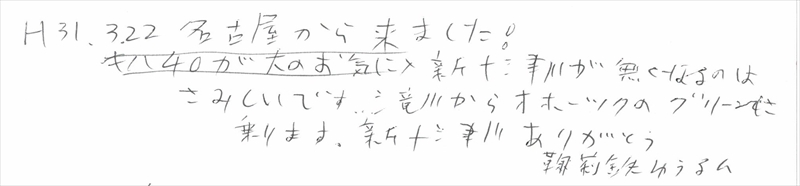 H31.3.22 名古屋から来ました!
キハ40が大のお気に入 新十津川が無くなるのは
さみしいです。滝川からオホーツクのグリーン
乗ります。新十津川ありがとう